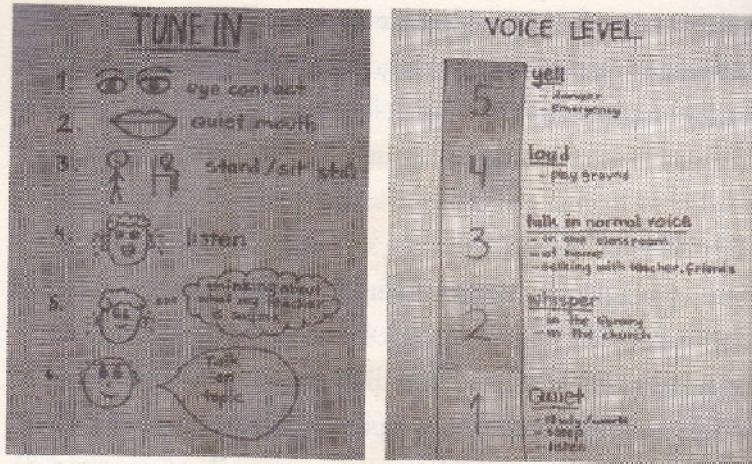 TUNE IN
1. eye contact
2. quiet mouth
3. stand/sit still
4. listen
5. thinking about
what my teacher
is saying
6. Talk
on
topic
VOICE LEVEL
5 yell
- danger
- emergency
4 loud
- play ground
3 talk in normal voice
- in the classroom
- at home
- talking with teacher, friends
2 whisper
- in the library
- in the church
1 Quiet
- study/work
- sleep
- listen